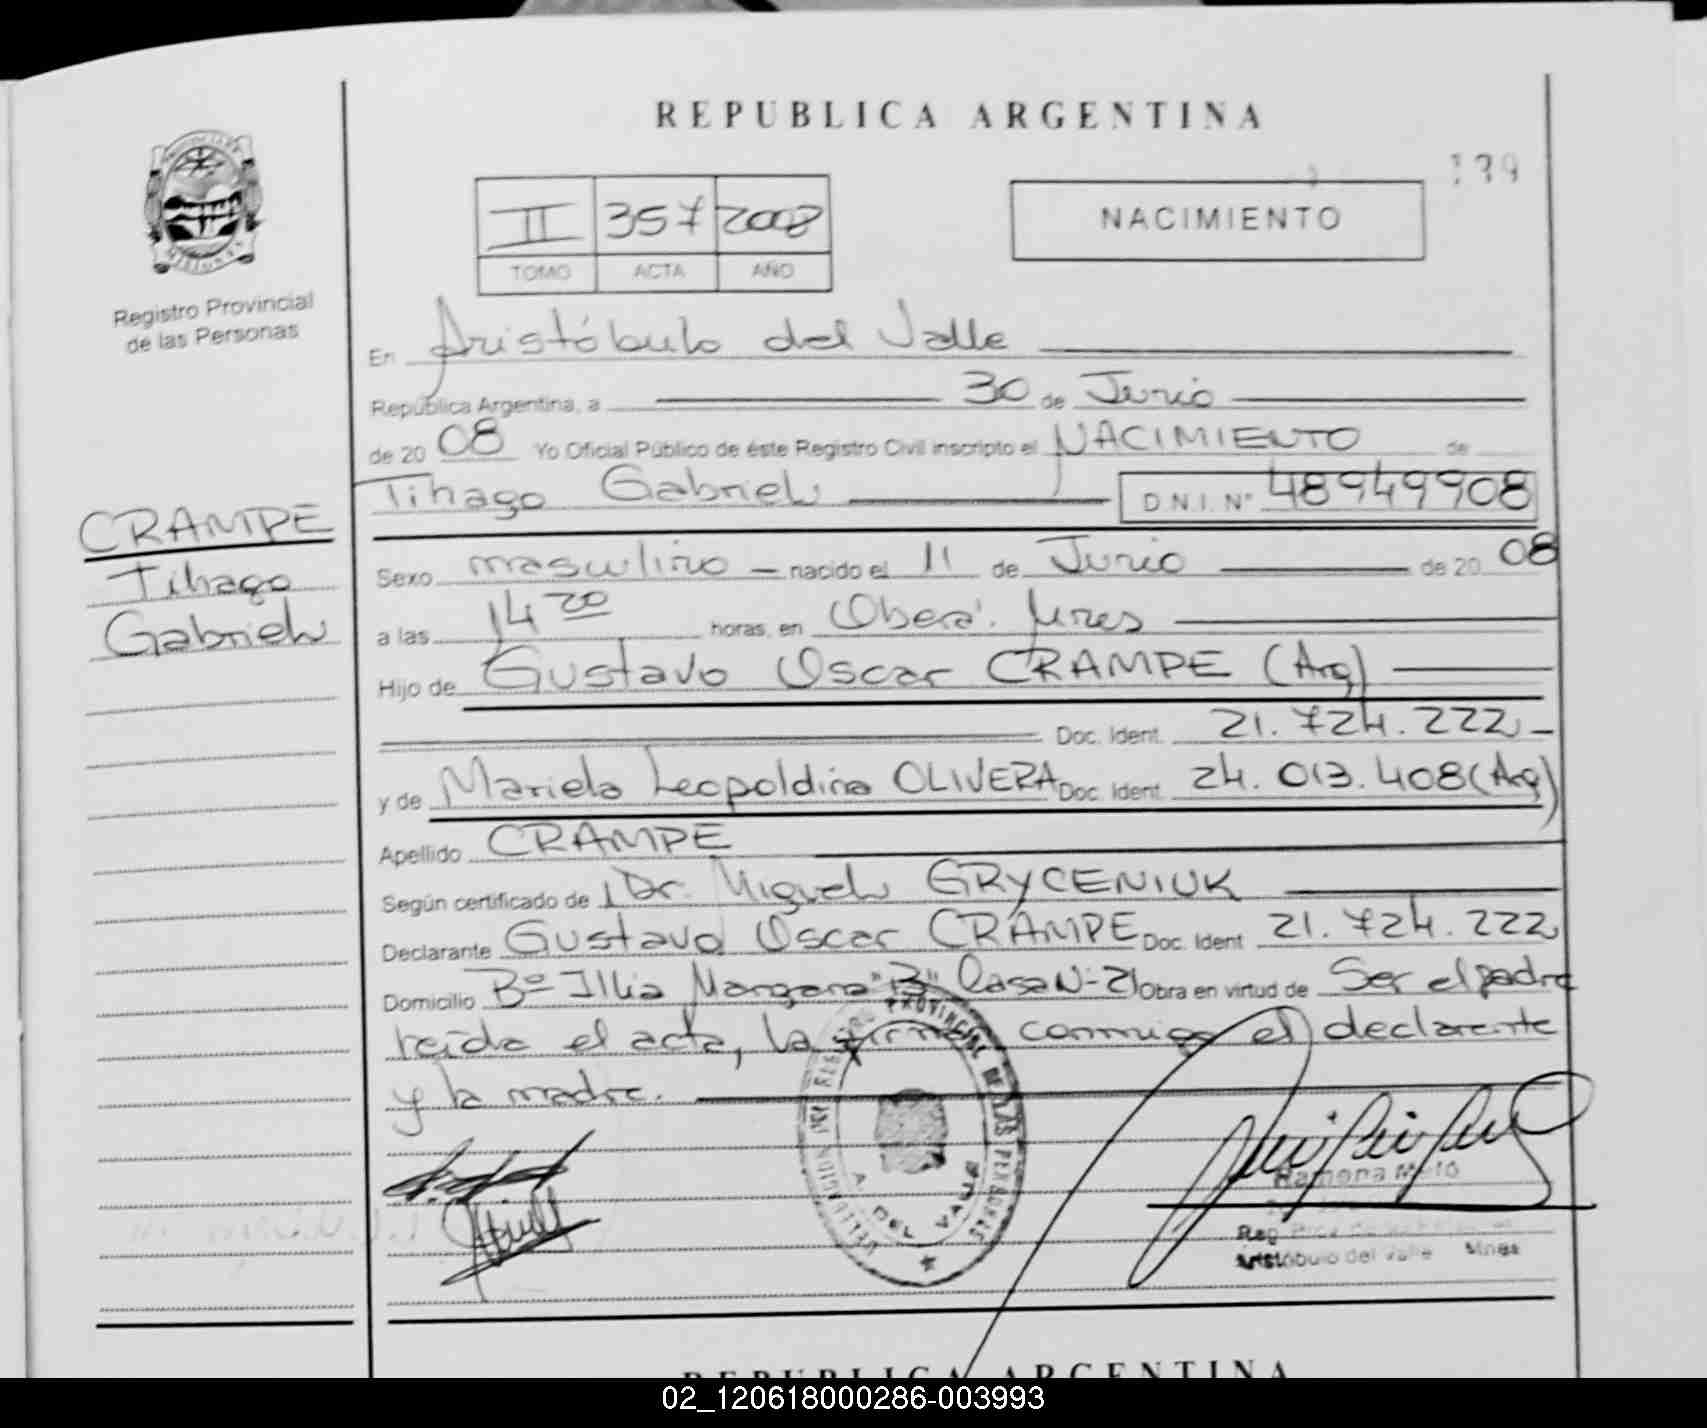 REPUBLICA ARGENTINA
139
II 357 2008
TOMO ACTA AÑO
NACIMIENTO
PROVINCIA DE
MISIONES
Registro Provincial
de las Personas
CRAMPE
Tihago
Gabriel
En Aristóbulo del Valle
República Argentina, a 30 de Junio
de 20 08 Yo Oficial Público de éste Registro Civil inscripto el NACIMIENTO de
Tihago Gabriel D.N.I. Nº 48949908
Sexo masculino - nacido el 11 de Junio de 20 08
a las 14 20 horas, en Oberá. Mnes
Hijo de Gustavo Oscar CRAMPE (Arg)
Doc. Ident. 21.724.222 -
y de Mariela Leopoldina OLIVERA Doc. Ident. 24.013.408 (Arg)
Apellido CRAMPE
Según certificado de Dr. Miguel GRYCENIUK
Declarante Gustavo Oscar CRAMPE Doc. Ident 21.724.222
Domicilio Bº Illia Manzana "B" Casa N-21 Obra en virtud de Ser el padre
leída el acta, la firma conmigo el declarante
y la madre.
REGISTRO PROVINCIAL DE LAS PERSONAS
DELEGACION
A. DEL VALLE
Ramona Melo
Reg
Aristóbulo del Valle Mnes
REPUBLICA ARGENTINA
02_120618000286-003993